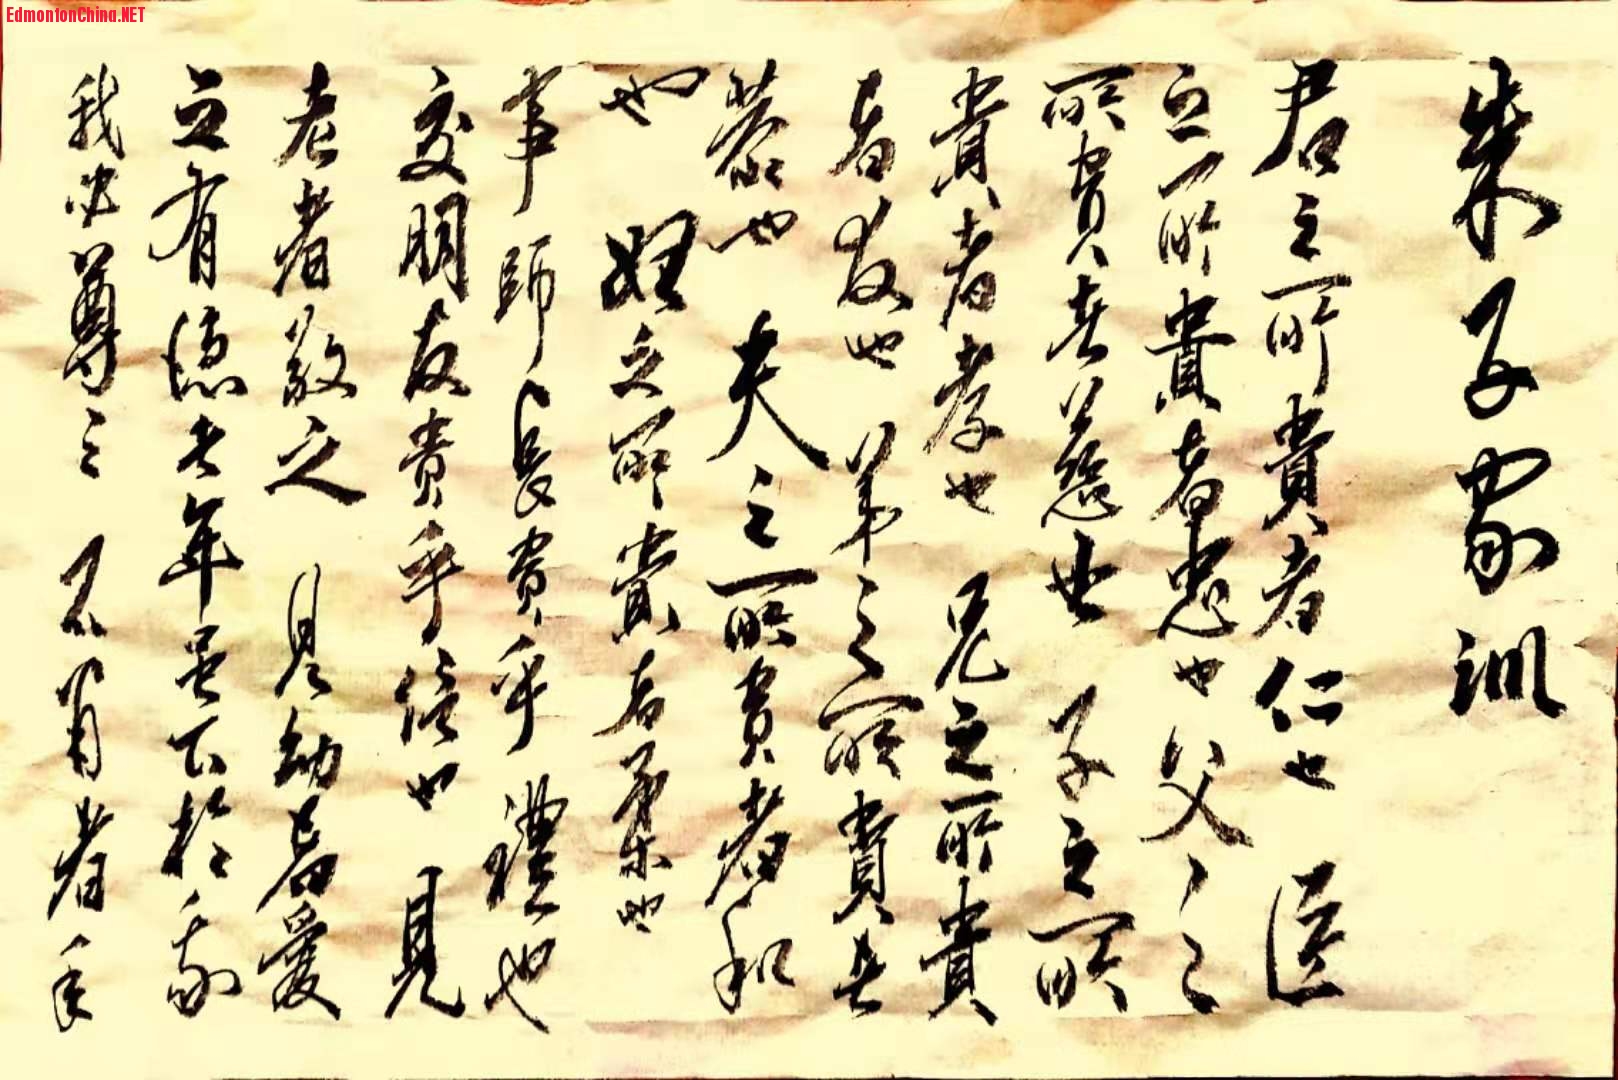 EdmontonChina.NET
朱子家訓
君之所貴者仁也 臣
之所貴者忠也 父之
所貴者慈也 子之所
貴者孝也 兄之所貴
者友也 弟之所貴者
恭也 夫之所貴者和
也 婦之所貴者柔也
事師長貴乎禮也
交朋友貴乎信也 見
老者敬之 見幼者愛
之 有德者年雖下於我
我必尊之 不肖者年